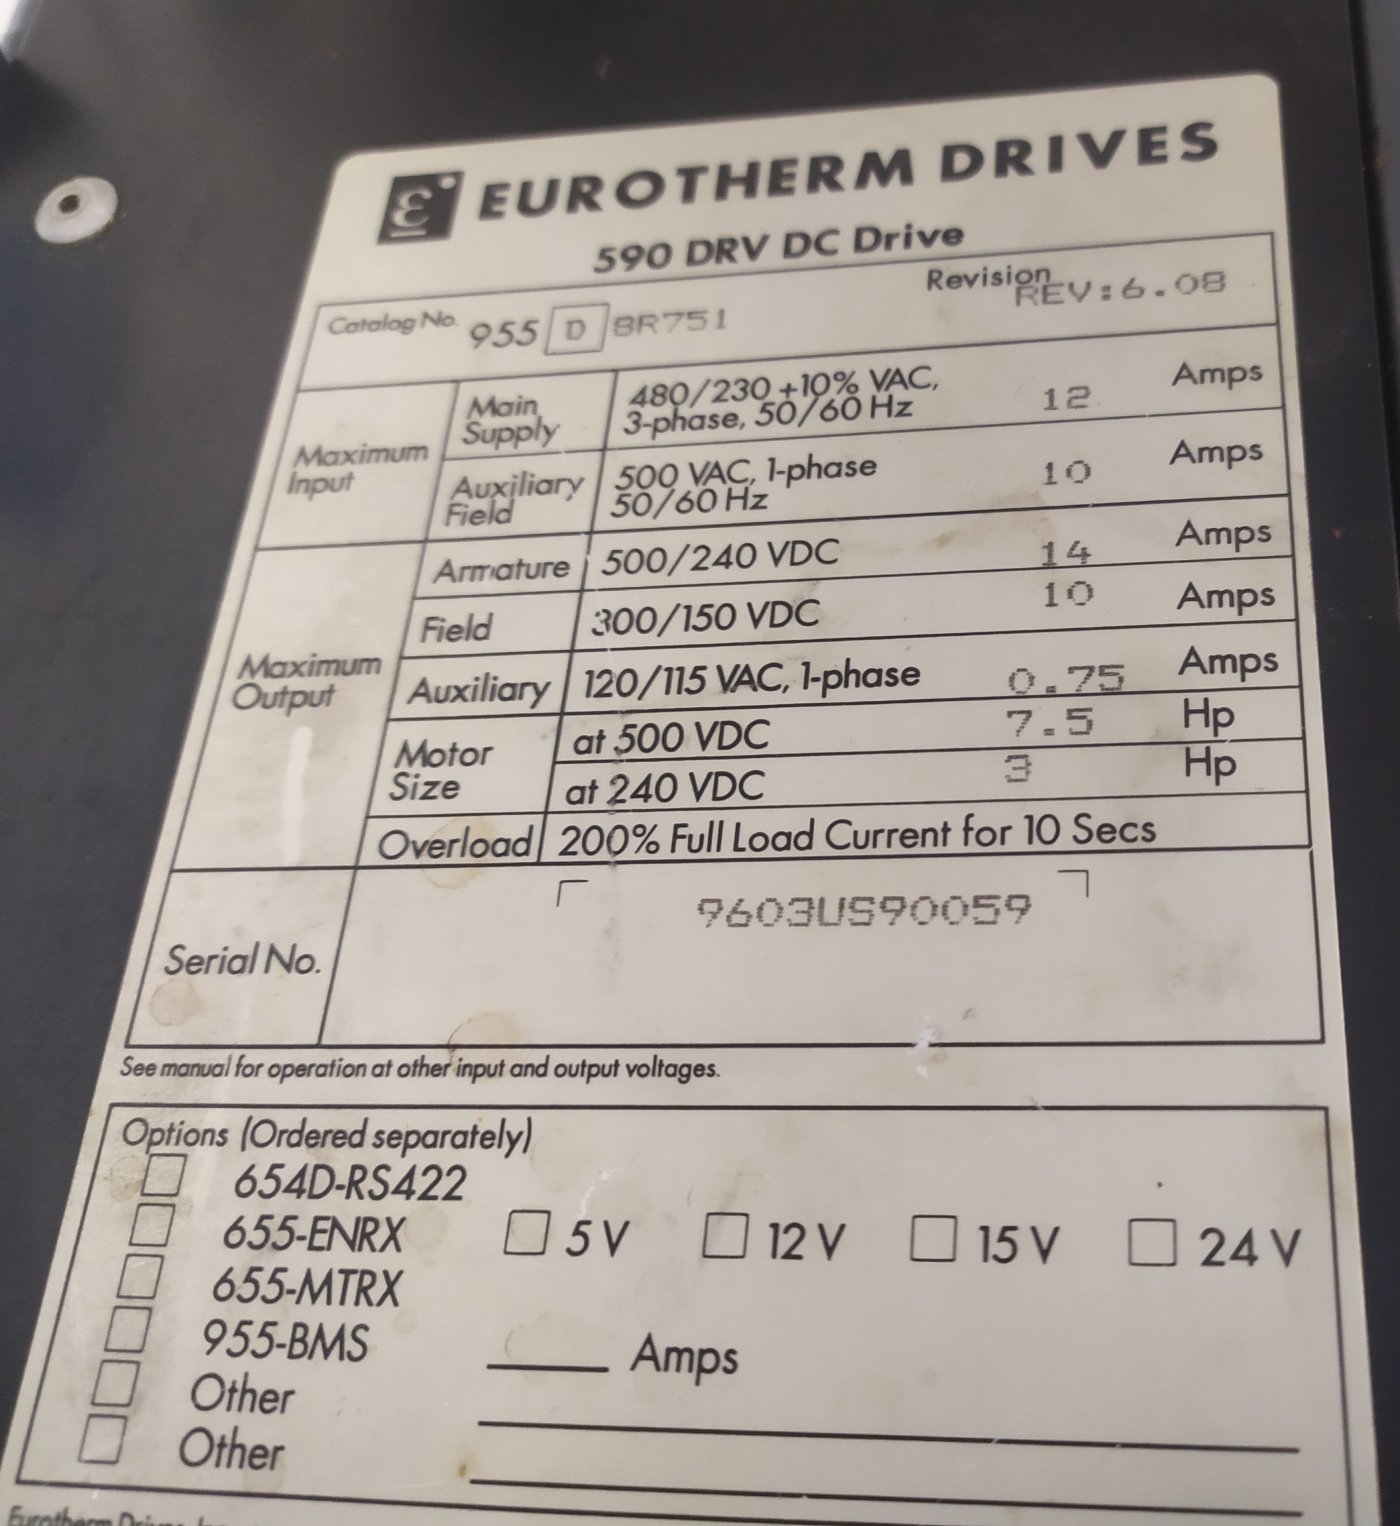 EUROTHERM DRIVES
590 DRV DC Drive
Catalog No. 955 D 8R751 Revision REV:6.08
Maximum Input
Main Supply 480/230 +10% VAC, 3-phase, 50/60 Hz 12 Amps
Auxiliary Field 500 VAC, 1-phase 50/60 Hz 10 Amps
Maximum Output
Armature 500/240 VDC 14 Amps
Field 300/150 VDC 10 Amps
Auxiliary 120/115 VAC, 1-phase 0.75 Amps
Motor Size at 500 VDC 7.5 Hp
at 240 VDC 3 Hp
Overload 200% Full Load Current for 10 Secs
Serial No. 9603US90059
See manual for operation at other input and output voltages.
Options (Ordered separately)
654D-RS422
655-ENRX 5 V 12 V 15 V 24 V
655-MTRX
955-BMS Amps
Other
Other
Eurotherm Drives, Inc.